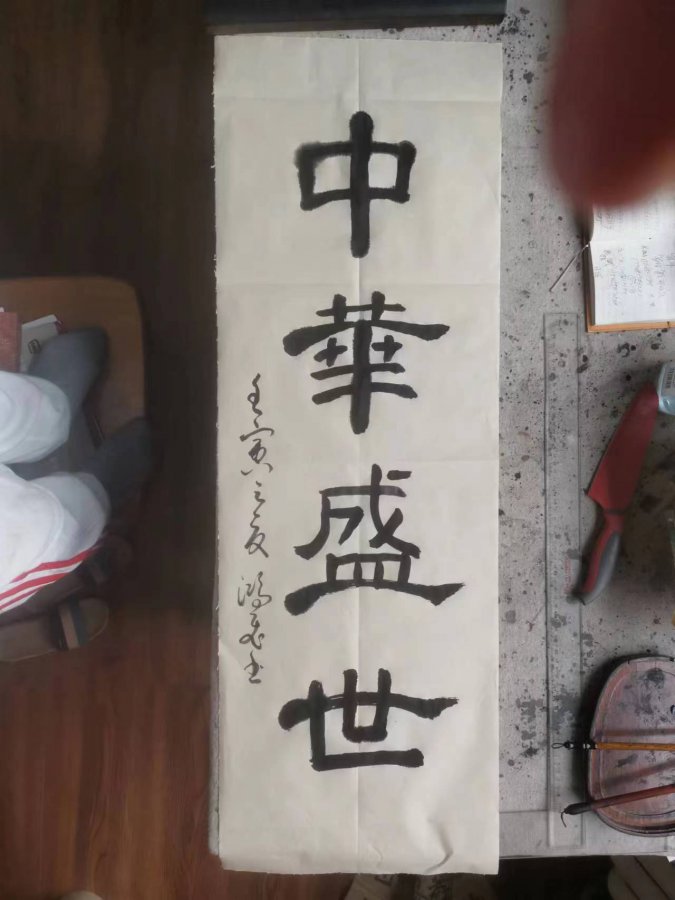 中華盛世
壬寅之夏 鴻 书